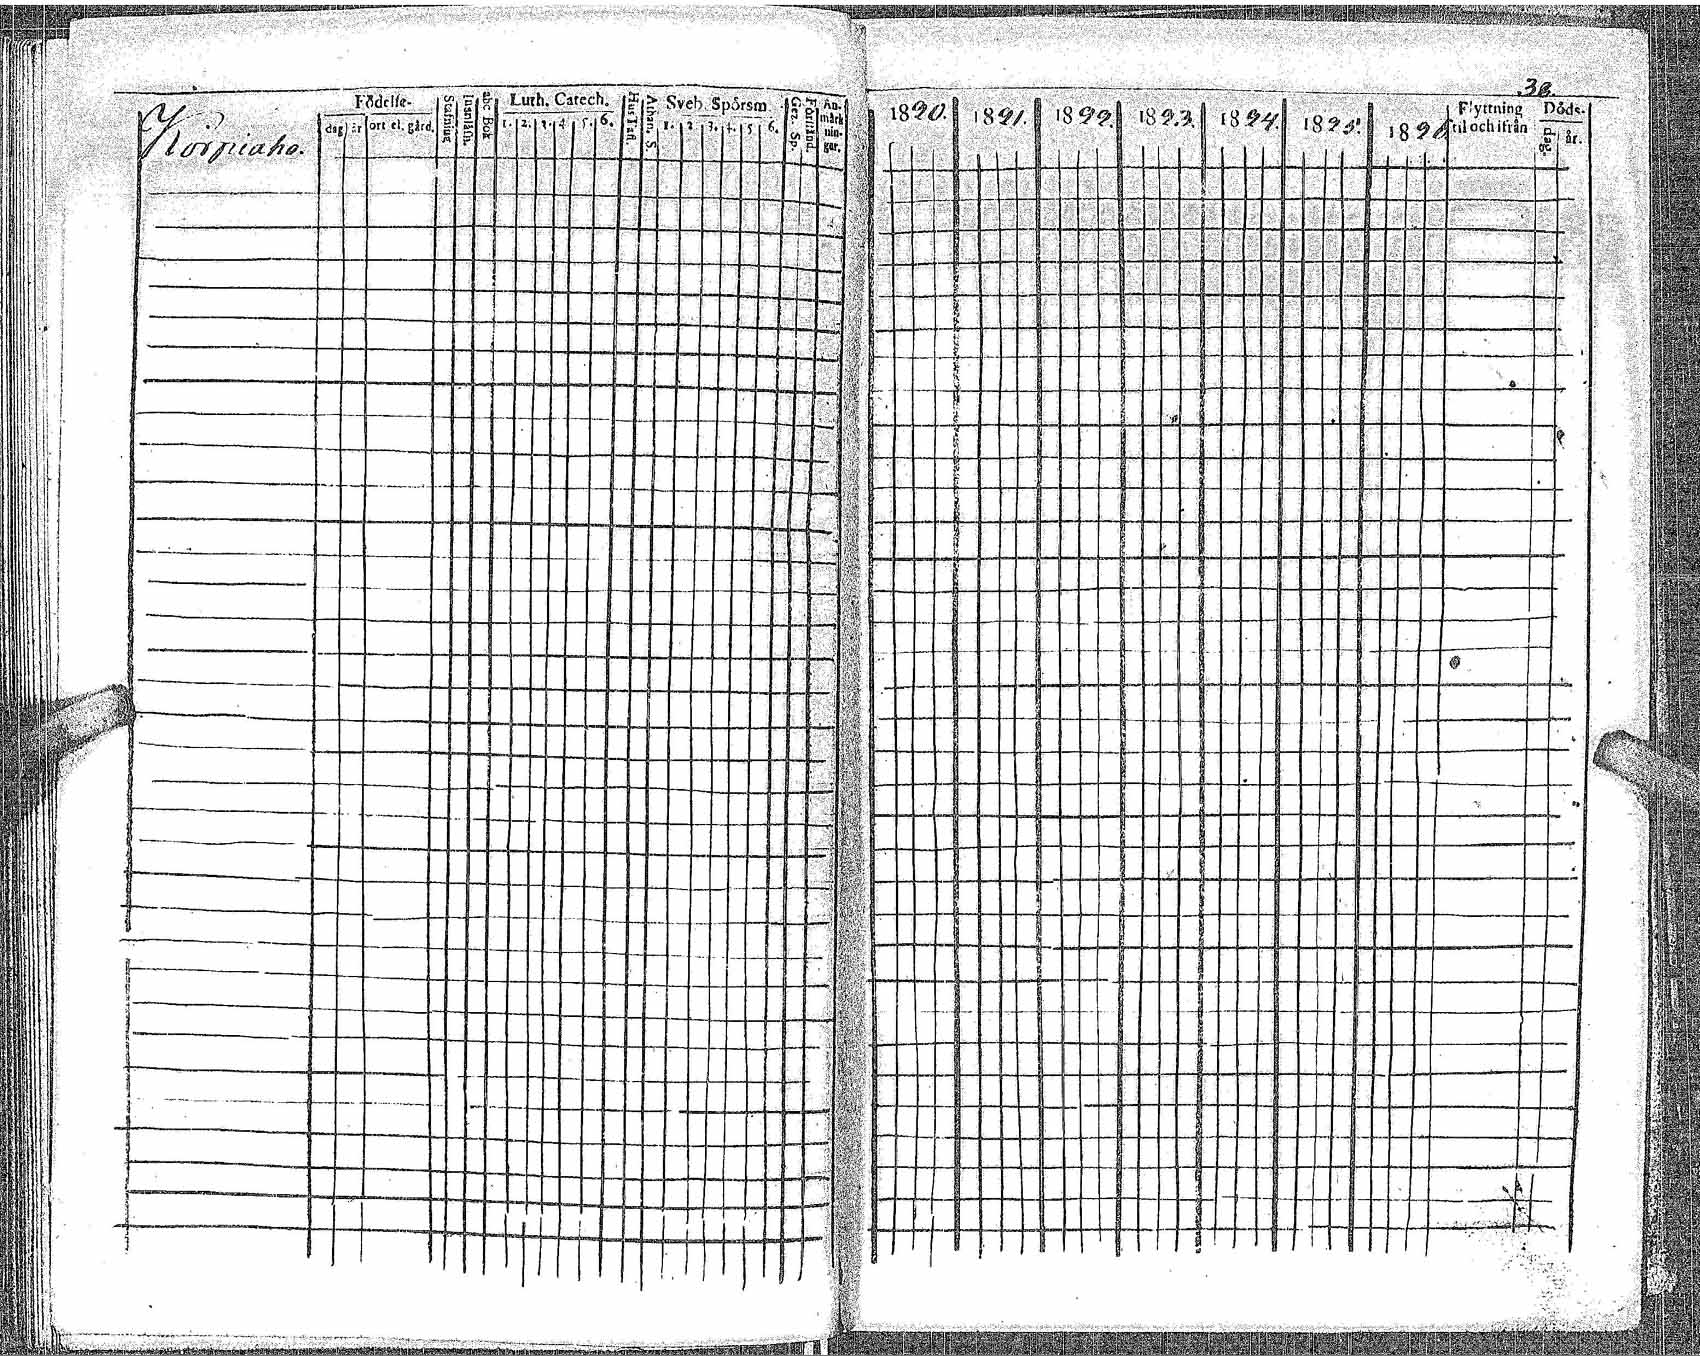 38.
Korpiaho.
Födelse-
dag år ort el. gård.
Stafning
Innanläsn.
abc Bok
Luth. Catech.
1. 2. 3. 4. 5. 6.
Hus Tafl.
Athan. S.
Sveb. Spörsm.
1. 2. 3. 4. 5. 6.
Gez. Sp.
Förstånd.
An-
märk
nin-
gar.
1820. 1821. 1822. 1823. 1824. 1825. 1826
Flyttning
til och ifrån
Döds-
dag. år.